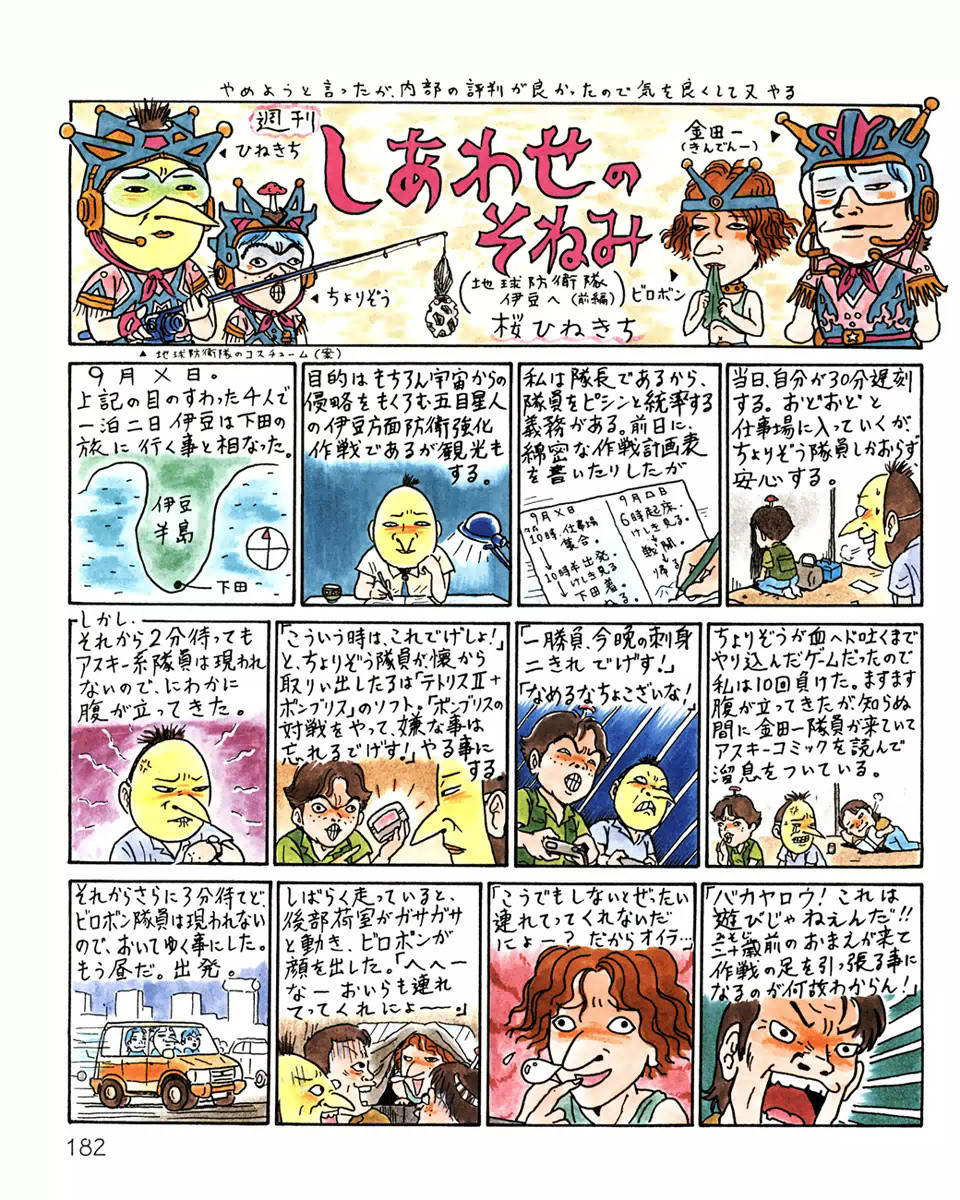 やめようと言ったが、内部の評判が良かったので気を良くして又やる
週刊
しあわせの
そねみ
(地球防衛隊
伊豆へ(前編))
桜ひねきち
◀ひねきち
◀ちょりぞう
金田一
(きんでんー)
ビロボン
▲地球防衛隊のコスチューム(案)
9月X日。
上記の目のすわった4人で
一泊二日伊豆は下田の
旅に行く事と相なった。
伊豆
半島
下田
目的はもちろん宇宙からの
侵略をもくろむ五目星人
の伊豆方面防衛強化
作戦であるが観光も
する。
私は隊長であるから、
隊員をピシンと統率する
義務がある。前日に、
綿密な作戦計画表
を書いたりしたが
9月X日
10時、仕事場
集合。
↓
10時半出発。
けしき見る
↓
下田着。
9月□日
6時起床。
けしき見る。
↓
戦闘。
↓
帰る
当日、自分が30分遅刻
する。おどおどと
仕事場に入っていくが、
ちょりぞう隊員しかおらず
安心する。
しかし、
それから2分待っても
アスキー系隊員は現われ
ないので、にわかに
腹が立ってきた。
「こういう時は、これでげしょ!」
と、ちょりぞう隊員が懐から
取りい出したるは「テトリスⅡ+
ボンブリス」のソフト。「ボンブリスの
対戦をやって、嫌な事は
忘れるでげす!」やる事に
する。
「一勝負、今晩の刺身
二きれ でげす!」
「なめるなちょこざいな!」
ちょりぞうが血ヘド吐くまで
やり込んだゲームだったので
私は10回負けた。ますます
腹が立ってきたが、知らぬ
間に金田一隊員が来ていて
アスキーコミックを読んで
溜息をついている。
それからさらに3分待てど、
ビロボン隊員は現われない
ので、おいてゆく事にした。
もう昼だ。出発。
しばらく走っていると、
後部荷室がガサガサ
と動き、ビロボンが
顔を出した。「へへー
なー おいらも連れ
てってくれにょー。」
「こうでもしないとぜったい
連れてってくれないだ
にょー? だからオイラ…
「バカヤロウ! これは
遊びじゃねえんだ!!
三十歳前のおまえが来て
みそじ
作戦の足を引っ張る事に
なるのが何故わからん!」
182